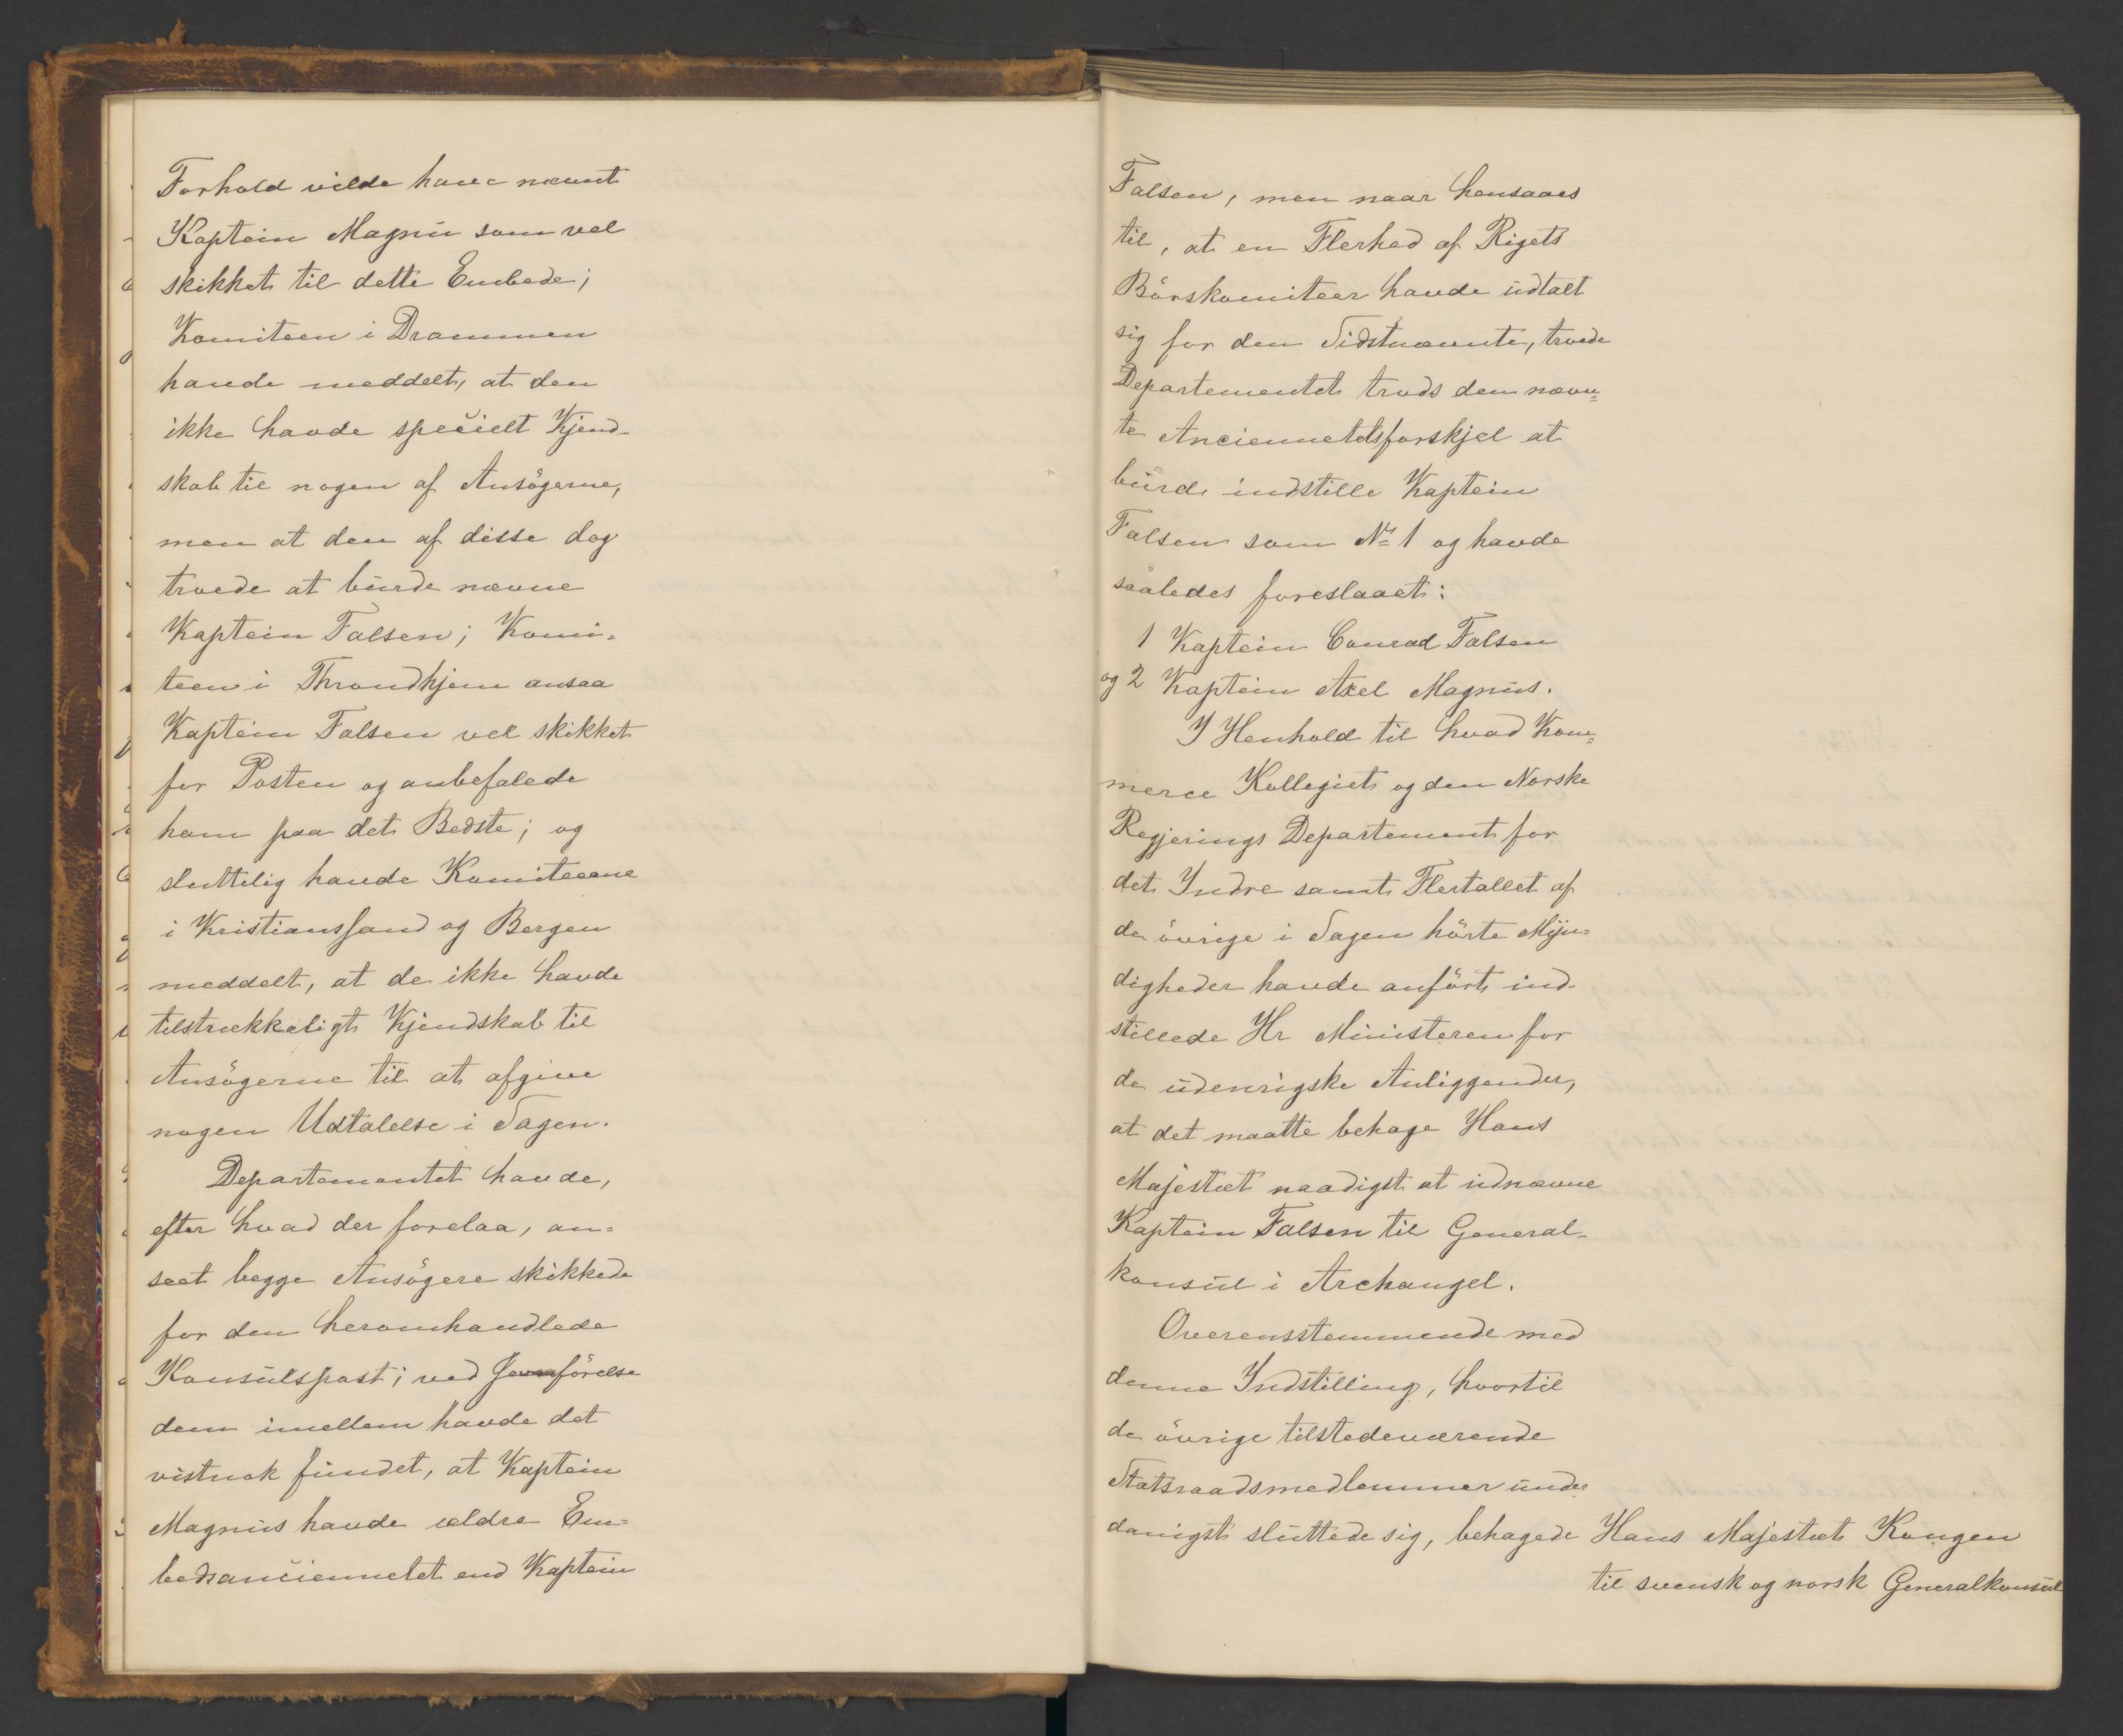 Forhold vilde have nævnt
Kaptein Magnu som vel
skikket til dette Embede;
Komiteen i Drammen
havde meddelt, at den
ikke havde specielt Kjend-
skab til nogen af Ansögerne,
men at den af disse dog
troede at burde nævne
Kaptein Falsen; Komi-
teen i Throndhjem ansaa
Kaptein Falsen vel skikket
for Posten og anbefalede
ham paa det Bedste; og
sluttelig havde Komiteerne
i Kristianssand og Bergen
meddelt, at de ikke havde
tilstrækkeligt Kjendskab til
Ansögerne til at afgive
nogen Udtalelse i Sagen.
Departementet havde,
efter hvad der forelaa, an-
seet begge Ansögere skikkede
for den heromhandlede
Konsulspost; ved Jevnförelse
dem imellem havde det
vistnok fundet, at Kaptein
Magnus havde ældre Em-
bedsanciennetet end Kaptein
Falsen, men naar hensaaes
til, at en Flerhed af Rigets
Börskomiteer havde udtalt
sig for den Sidstnævnte, troede
Departementet trods den nævn-
te Anciennetetsforskjel at
burde indstille Kaptein
Falsen som No 1 og havde
saaledes foreslaaet:
1 Kaptein Conrad Falsen
og 2 Kaptein Axel Magnus.
I Henhold til hvad Kom-
merce Kollegiet og den Norske
Regjerings Departement for
det Indre samt Flertallet af
de övrige i Sagen hörte Myn-
digheder havde anfört ind-
stillede Hr Ministeren for
de udenrigske Anliggender,
at det maatte behage Hans
Majestæt naadigst at udnævne
Kaptein Falsen til General-
konsul i Archangel.
Overensstemmende med
denne Indstilling, hvortil
de övrige tilstedeværende
Statsraadsmedlemmer under
danigst sluttede sig, behagede Hans Majestæt Kongen
til svensk og norsk Generalkonsul